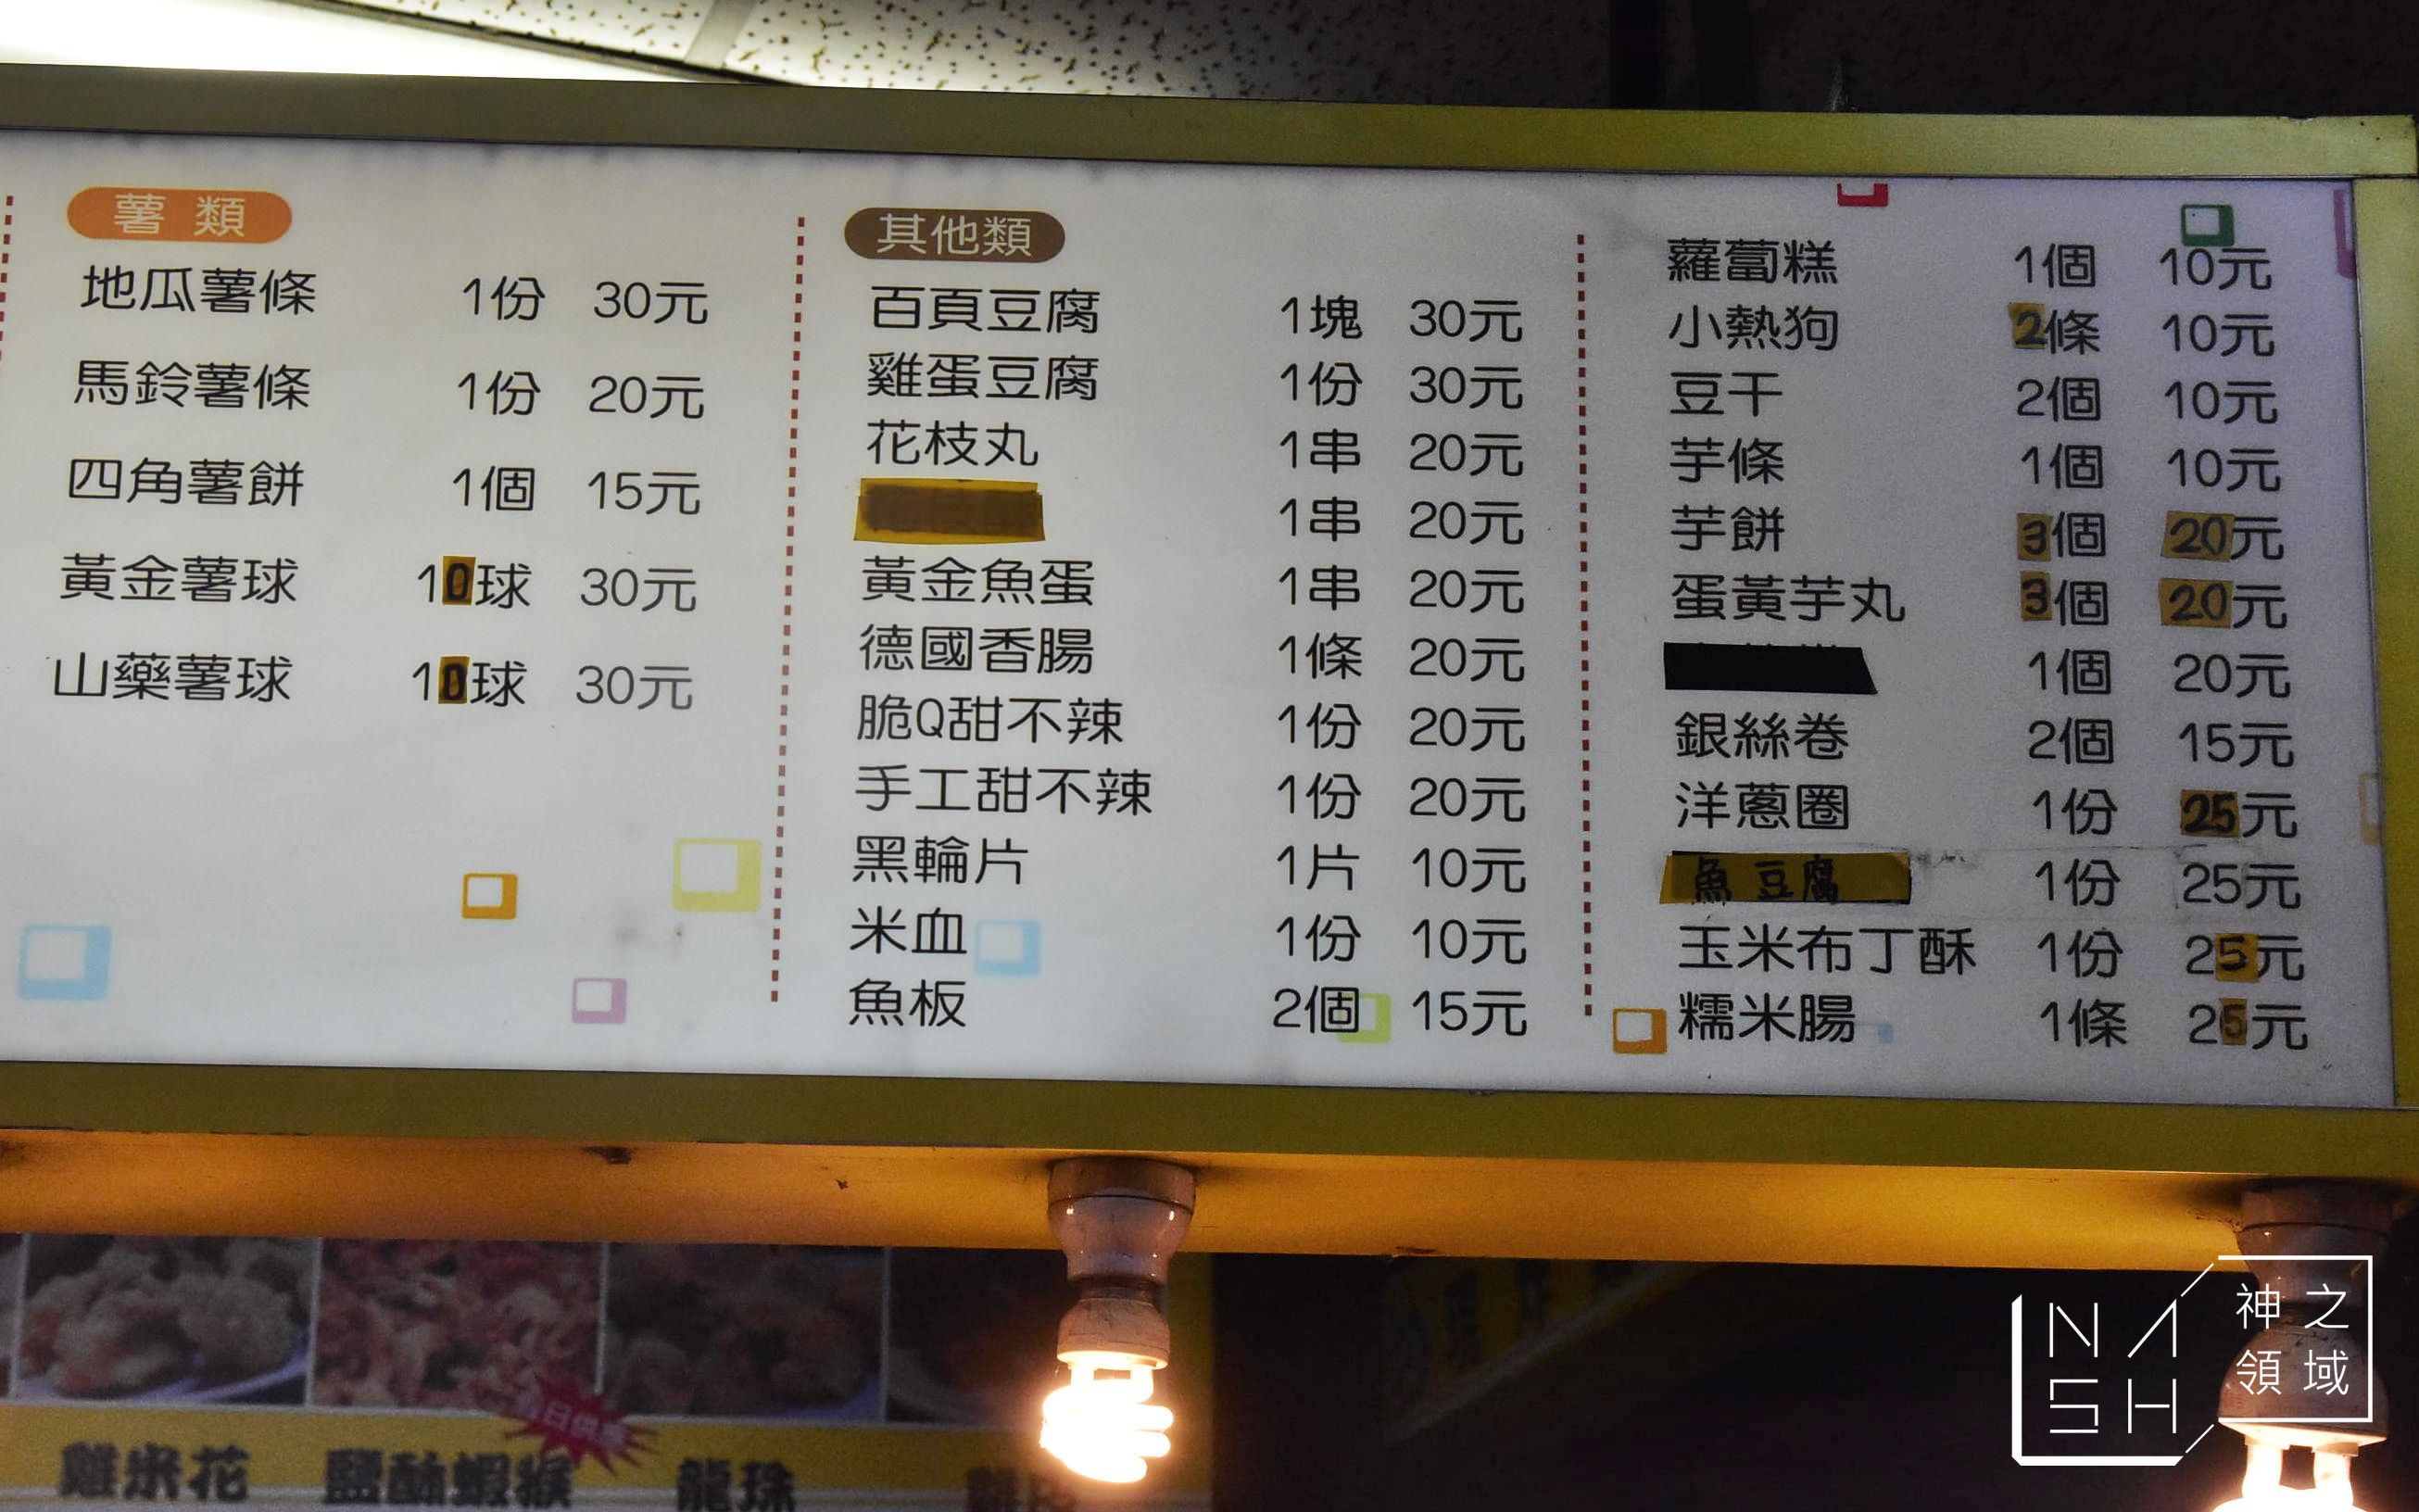 薯類
地瓜薯條 1份 30元
馬鈴薯條 1份 20元
四角薯餅 1個 15元
黃金薯球 10球 30元
山藥薯球 10球 30元
其他類
百頁豆腐 1塊 30元
雞蛋豆腐 1份 30元
花枝丸 1串 20元
1串 20元
黃金魚蛋 1串 20元
德國香腸 1條 20元
脆Q甜不辣 1份 20元
手工甜不辣 1份 20元
黑輪片 1片 10元
米血 1份 10元
魚板 2個 15元
蘿蔔糕 1個 10元
小熱狗 2條 10元
豆干 2個 10元
芋條 1個 10元
芋餅 3個 20元
蛋黃芋丸 3個 20元
1個 20元
銀絲卷 2個 15元
洋蔥圈 1份 25元
魚豆腐 1份 25元
玉米布丁酥 1份 25元
糯米腸 1條 25元
雞米花 鹽酥蝦猴 龍珠
NASH
神之
領域